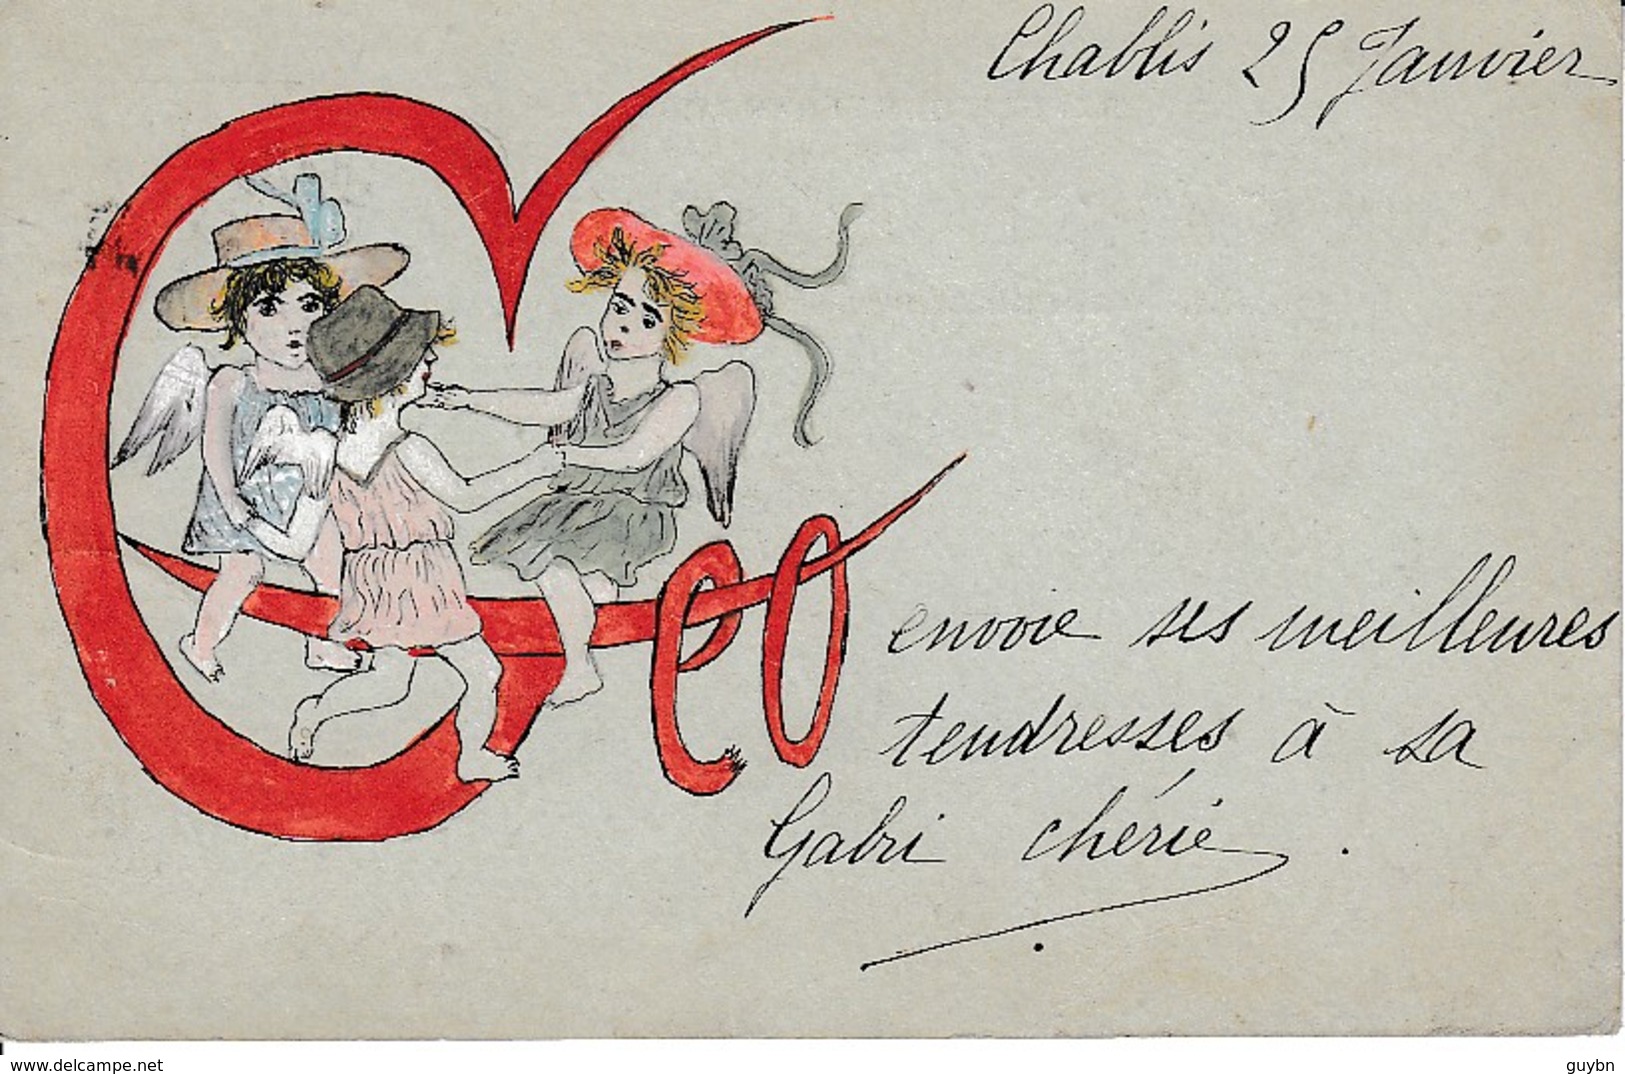 Chablis 25 Janvier
Geo
envoie ses meilleures
tendresses à sa
Gabri chérie.
delcampe.net
guybn